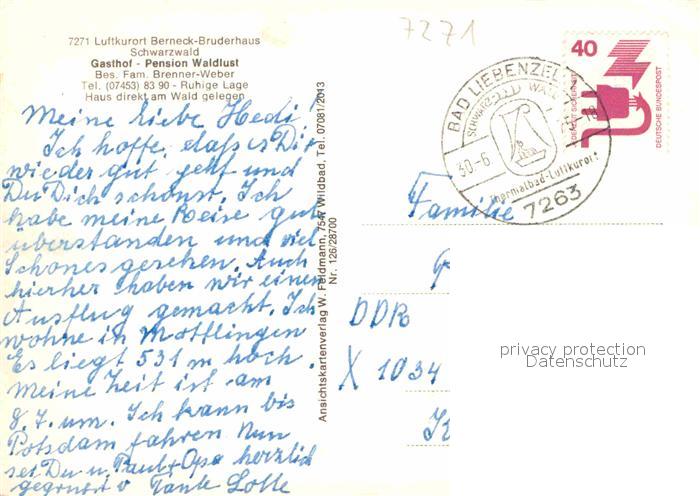 7271
7271 Luftkurort Berneck-Bruderhaus
Schwarzwald
Gasthof - Pension Waldlust
Bes. Fam. Brenner-Weber
Tel. (07453) 83 90 - Ruhige Lage
Haus direkt am Wald gelegen
Meine liebe Hedi,
Ich hoffe, daß es Dir
wieder gut geht und
Du Dich schonst. Ich
habe meine Reise gut
überstanden und viel
Schönes gesehen. Auch
hierher haben wir einen
Ausflug gemacht. Ich
wohne in Möttlingen
Es liegt 531 m hoch.
Meine Zeit ist am
8.7. um. Ich kann bis
Potsdam fahren. Nun
sei Du u. Paul + Opa herzlich
gegrüßt v Tante Lotte
Ansichtskartenverlag W. Feldmann, 7547 Wildbad, Tel. 07081/2013
Nr. 126/28700
BAD LIEBENZELL
SCHWARZWALD
30.-6.
Thermalbad-Luftkurort
7263
40
JEDERZEIT SICHERHEIT
DEUTSCHE BUNDESPOST
Familie
DDR
X 1034
privacy protection
Datenschutz